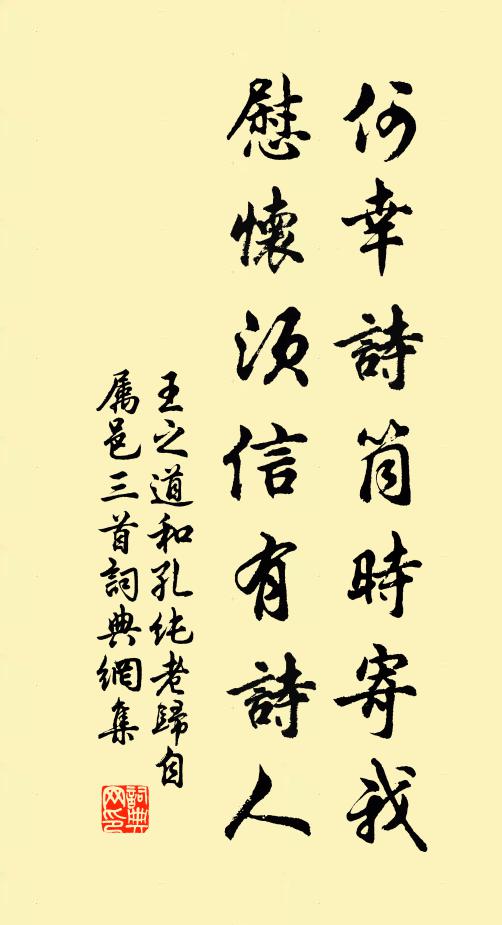 何幸詩筒時寄我
慰懷須信有詩人
王之道和孔純老歸自
屬邑三首詞典網集
詞典網印